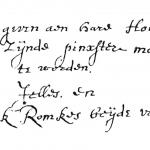 geven aen hare
Zijnde pinxster
te worden.
Jelles, en
Romkes beijde